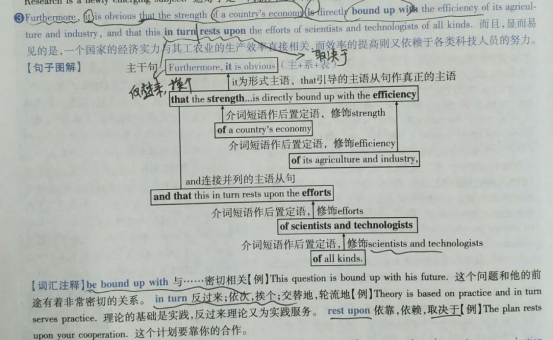 ③Furthermore, it is obvious that the strength of a country's economy is directly bound up with the efficiency of its agricul-
ture and industry, and that this in turn rests upon the efforts of scientists and technologists of all kinds. 而且,显而易
见的是,一个国家的经济实力与其工农业的生产效率直接相关,而效率的提高则又依赖于各类科技人员的努力。
取决于
【句子图解】 主干句 Furthermore, it is obvious (主+系+表)
it为形式主语, that引导的主语从句作真正的主语
that the strength...is directly bound up with the efficiency
介词短语作后置定语, 修饰strength
of a country's economy
介词短语作后置定语, 修饰efficiency
of its agriculture and industry,
and连接并列的主语从句
and that this in turn rests upon the efforts
介词短语作后置定语, 修饰efforts
of scientists and technologists
介词短语作后置定语, 修饰scientists and technologists
of all kinds.
【词汇注释】be bound up with 与……密切相关【例】This question is bound up with his future. 这个问题和他的前
途有着非常密切的关系。 in turn 反过来;依次,挨个;交替地,轮流地【例】Theory is based on practice and in turn
serves practice. 理论的基础是实践,反过来理论又为实践服务。 rest upon 依靠,依赖,取决于【例】The plan rests
upon your cooperation. 这个计划要靠你的合作。